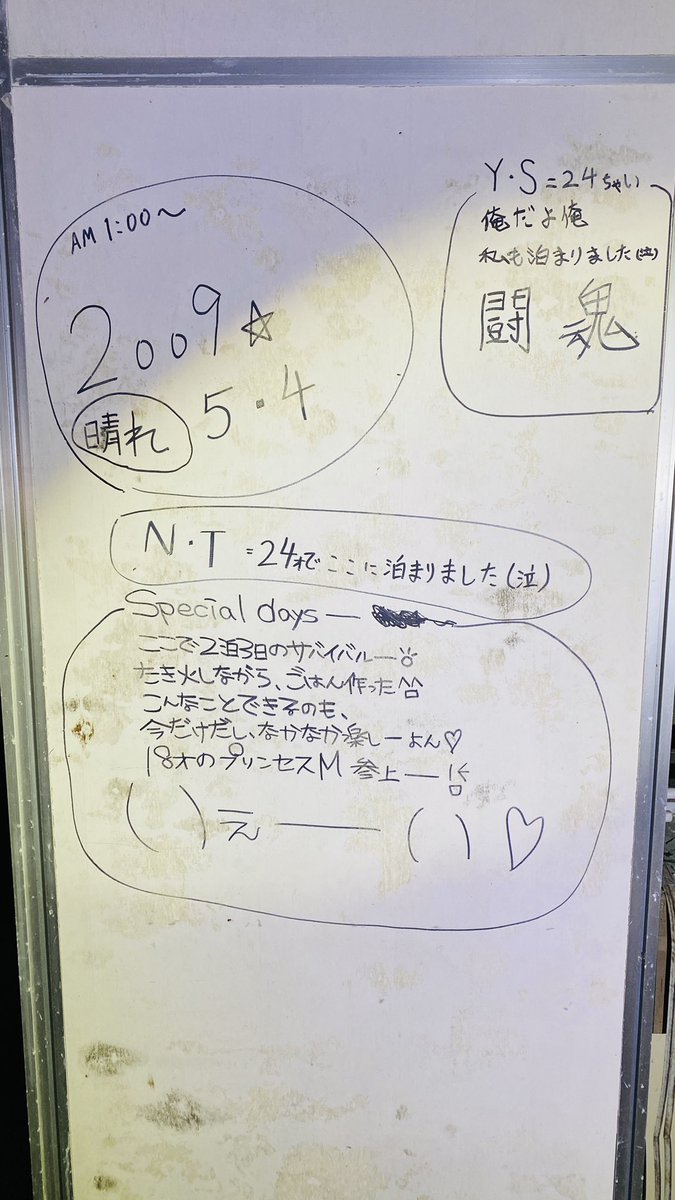 AM 1:00〜
2009☆
晴れ 5.4
Y・S=24ちゃい
俺だよ俺
私も泊まりました(泣)
闘魂
N・T=24才でここに泊まりました(泣)
Special days—
ここで2泊3日のサバイバルー
たき火しながら、ごはん作った^^
こんなことできるのも、
今だけだし、なかなか楽しーよん♡
18才のプリンセスM 参上ー
( )え———( )♡